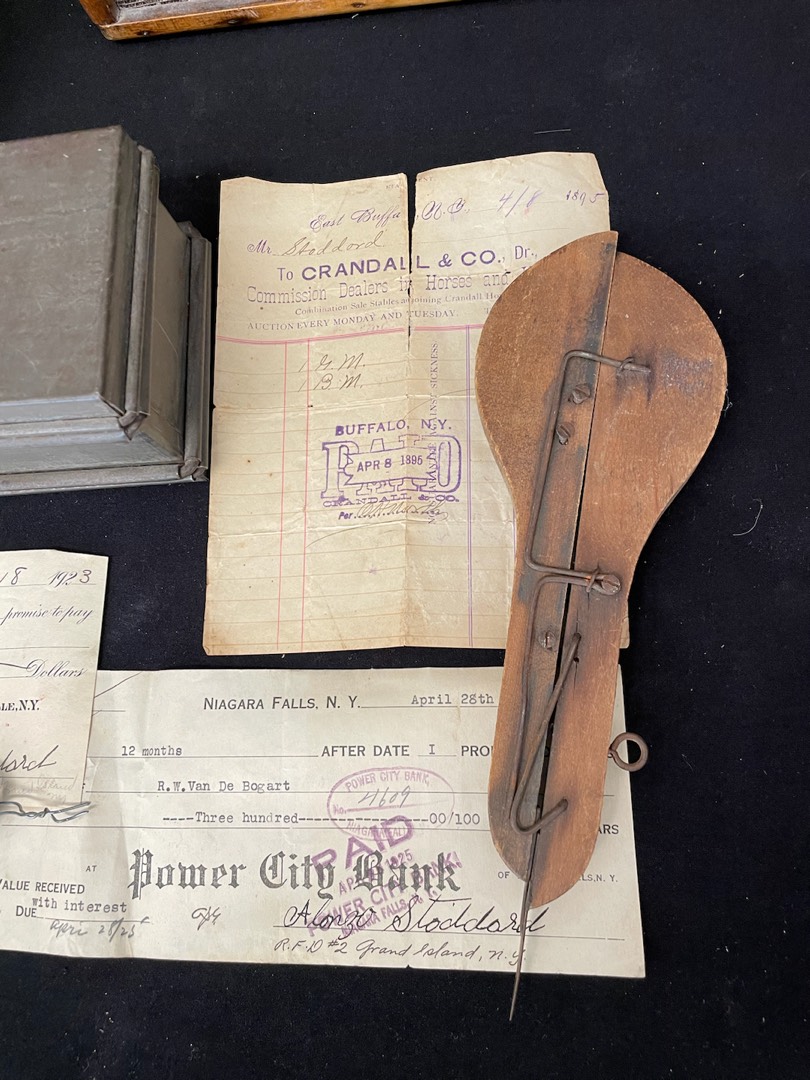 East Buffa , N.Y., 4/8 1895
Mr. Stoddord
To CRANDALL & CO., Dr.,
Commission Dealers in Horses and
Combination Sale Stables adjoining Crandall Ho
AUCTION EVERY MONDAY AND TUESDAY.
1 G. M.
1 B. M.
AGAINST SICKNESS
BUFFALO, N.Y.
PAID
APR 8 1895
CRANDALL & CO.
Per
18 1923
promise to pay
Dollars
LE, N.Y.
dard
NIAGARA FALLS, N. Y. April 28th
12 months AFTER DATE I PRO
R.W.Van De Bogart
----Three hundred---------------00/100
ARS
POWER CITY BANK,
No. 4609
NIAGARA FALLS
PAID
POWER CITY BANK
NIAGARA FALLS, N.Y.
AT Power City Bank OF LS, N.Y.
VALUE RECEIVED
with interest
DUE April 28/25
Alonzo Stoddard
R.F.D #2 Grand Island, N.Y.